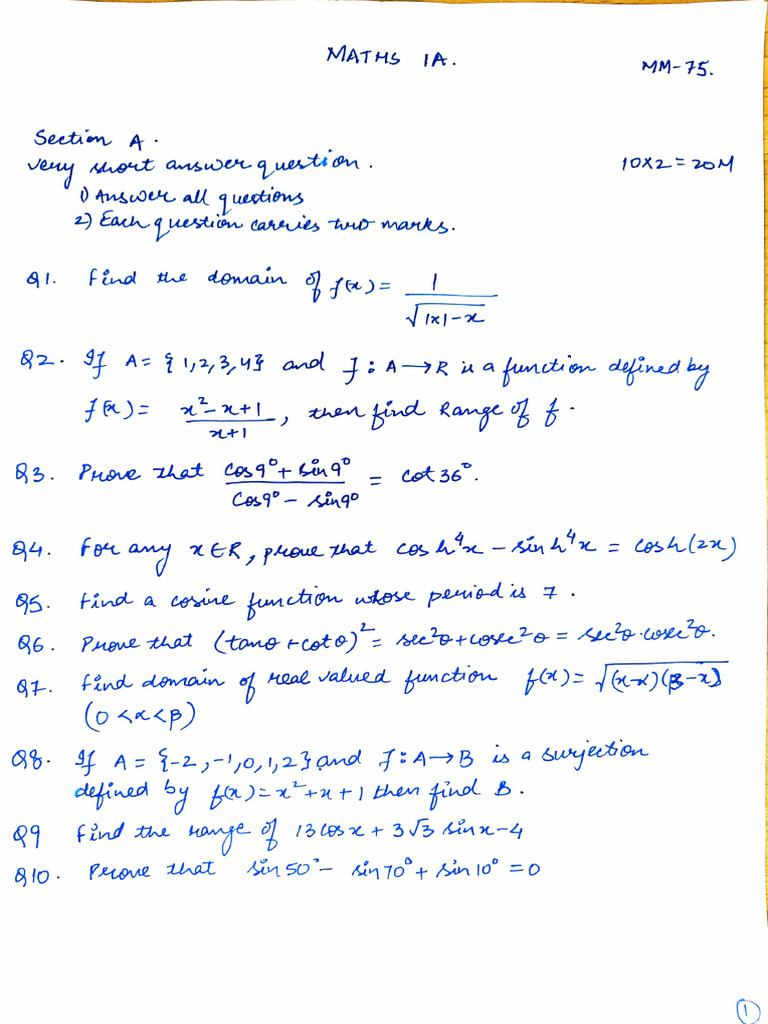 MATHS 1A.
MM-75.
Section A.
Very short answer question. 10x2=20M
1) Answer all questions
2) Each question carries two marks.
Q1. Find the domain of f(x) = 1 / √(|x|-x)
Q2. If A = {1,2,3,4} and f : A → R is a function defined by
f(x) = (x²-x+1)/(x+1), then find Range of f.
Q3. Prove that (cos9°+ sin9°)/(cos9°- sin9°) = cot 36°.
Q4. For any x∈R, prove that cosh⁴x - sinh⁴x = cosh(2x)
Q5. Find a cosine function whose period is 7.
Q6. Prove that (tanθ+cotθ)² = sec²θ+cosec²θ = sec²θ.cosec²θ.
Q7. Find domain of real valued function f(x)=√(x-α)(β-x)
(0<α<β)
Q8. If A = {-2,-1,0,1,2} and f:A→B is a surjection
defined by f(x)=x²+x+1 then find B.
Q9 Find the range of 13cosx+3√3 sinx-4
Q10. Prove that sin50°- sin70°+ sin10°=0
1